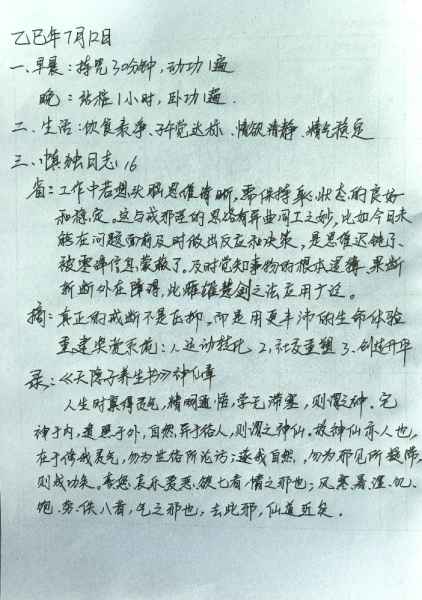 乙巳年7月12日
一、早晨：持咒30分钟，动功1遍
晚：站桩1小时，卧功1遍.
二、生活：饮食素净、子午觉达标、情欲清静、精气稳定
三、慎独日志16
省：工作中若想头脑思维清晰，需保持身心状态的良好
和稳定。这与戒邪淫的思路有异曲同工之妙，比如今日未
能在问题面前及时做出反应和决策，是思维迟钝了、
被零碎信息蒙蔽了。及时觉知事物的根本逻辑，果断
斩断外在障碍，此雌雄慧剑之法应用于这。
摘：真正的戒断不是压抑，而是用更丰沛的生命体验
重建奖赏系统：1.运动转化 2.社交重塑 3.创造升华
录：《天隐子养生书》神仙章
人生时禀得灵气，精明通悟，学无滞塞，则谓之神。宅
神于内，遗照于外，自然异于俗人，则谓之神仙。故神仙亦人也，
在于修我灵气，勿为世俗所沦污；遂我自然，勿为邪见所凝滞，
则成功矣。喜怒哀乐爱恶欲七者，情之邪也；风寒暑湿饥
饱劳佚八者，气之邪也，去此邪，仙道近矣.